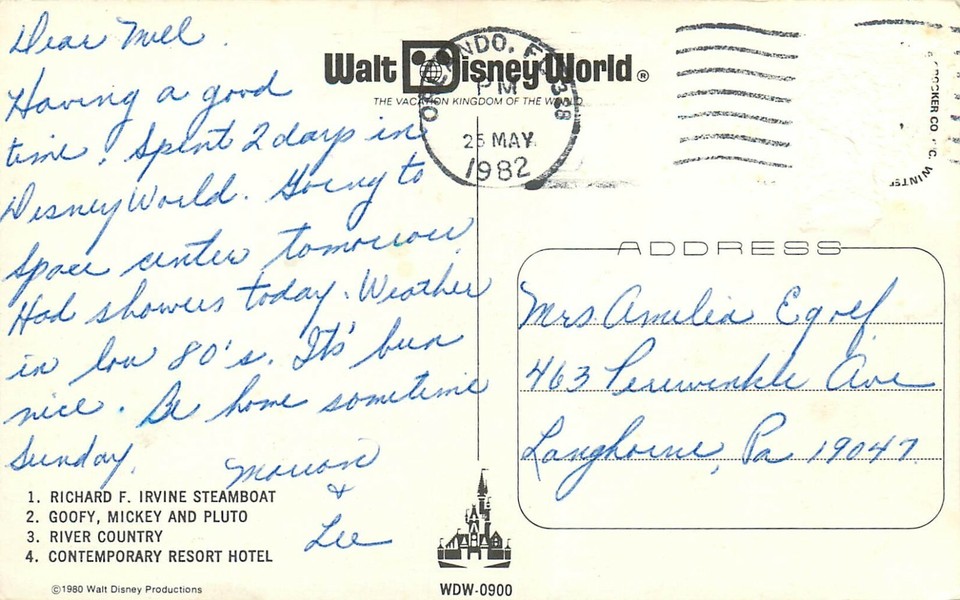 Dear Mel.
Having a good
time. Spent 2 days in
Disney World. Going to
space center tomorrow
Had showers today. Weather
in low 80's. It's been
nice. Be home sometime
Sunday.
Marion
&
Lee
1. RICHARD F. IRVINE STEAMBOAT
2. GOOFY, MICKEY AND PLUTO
3. RIVER COUNTRY
4. CONTEMPORARY RESORT HOTEL
©1980 Walt Disney Productions
Walt Disney World®
THE VACATION KINGDOM OF THE WORLD
ORLANDO, FL 328
PM
25 MAY
1982
CROCKER CO. INC. WINTER
ADDRESS
Mrs Amelia Egolf
463 Periwinkle Ave
Langhorne, Pa 19047.
WDW-0900